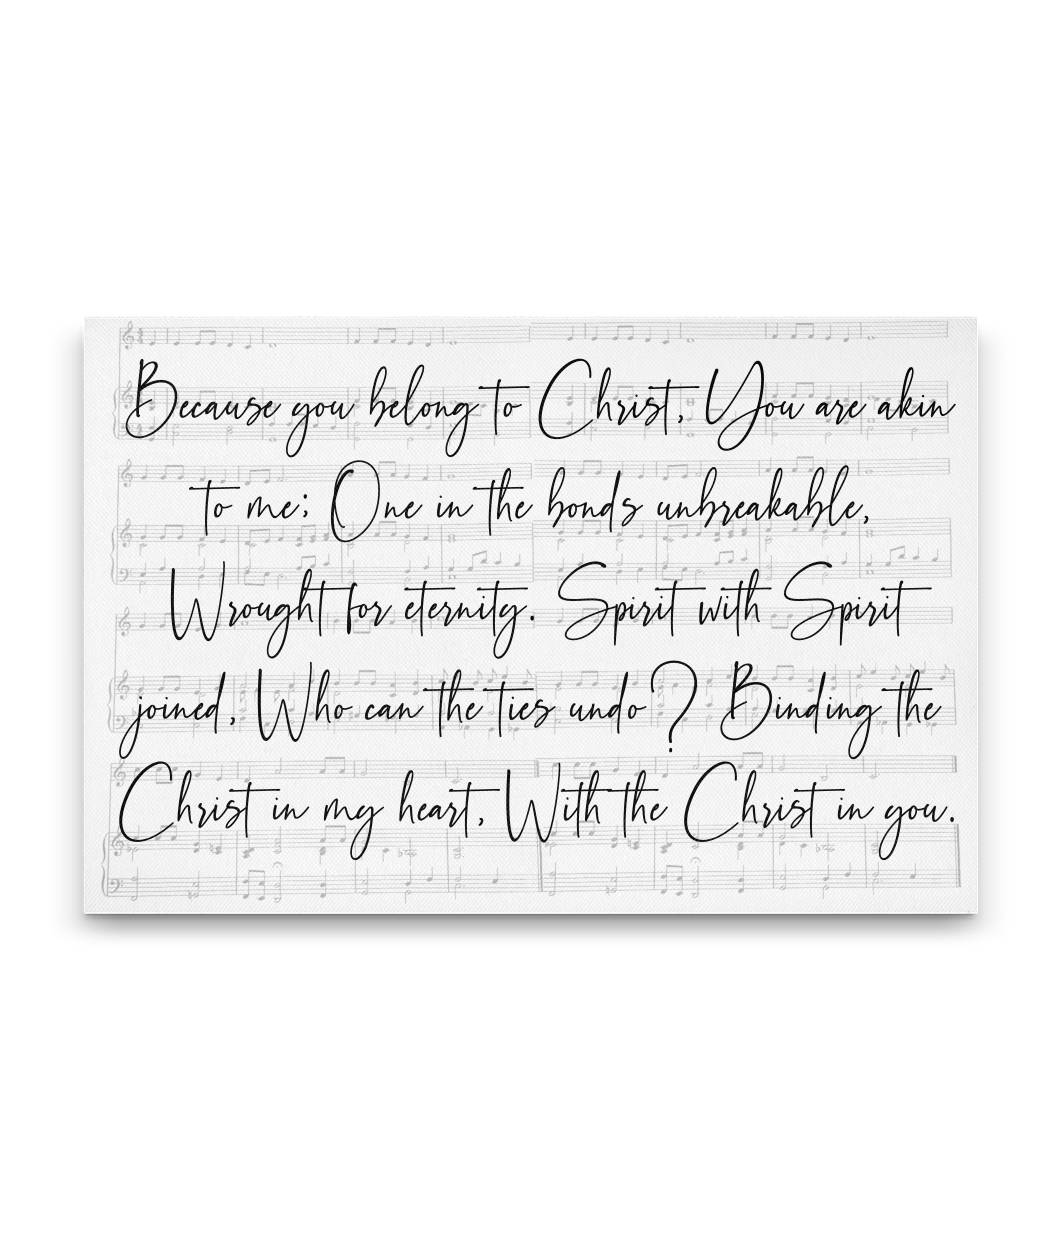 Because you belong to Christ, You are akin
to me; One in the bonds unbreakable,
Wrought for eternity. Spirit with Spirit
joined, Who can the ties undo? Binding the
Christ in my heart, With the Christ in you.